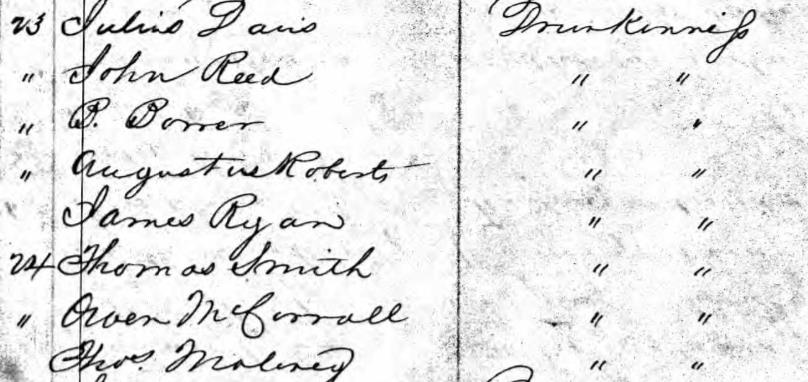 23 Julius Davis Drunkenness
" John Reed " "
" B. " "
" Augustus Roberts " "
James Ryan " "
24 Thomas Smith " "
" Owen McCorroll " "
Thos. Moloney " "